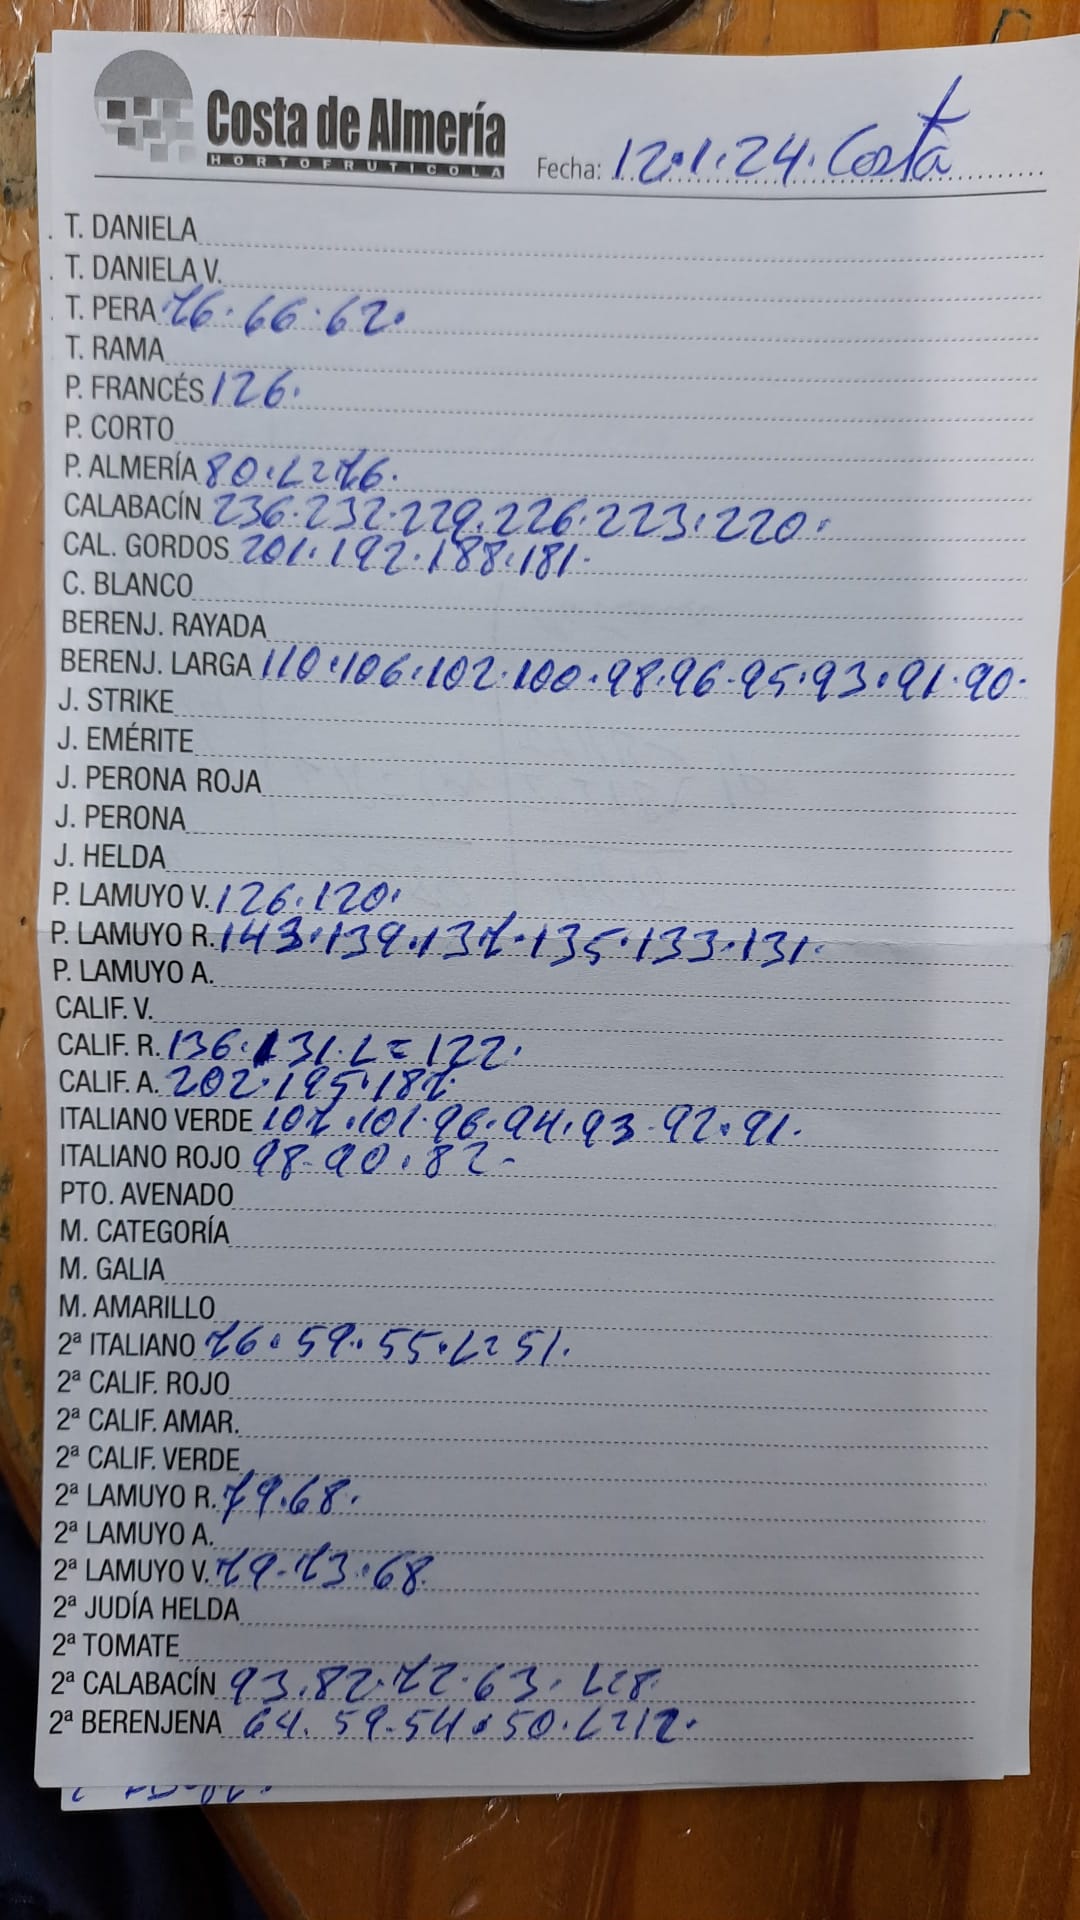 Costa de Almería
HORTOFRUTICOLA
Fecha: 12.1.24. Costa
T. DANIELA
T. DANIELA V.
T. PERA 76.66.62.
T. RAMA
P. FRANCÉS 126.
P. CORTO
P. ALMERÍA 80.L=76.
CALABACÍN 236.232.229.226.223.220.
CAL. GORDOS 201.192.188.181.
C. BLANCO
BERENJ. RAYADA
BERENJ. LARGA 110.106.102.100.98.96.95.93.91.90.
J. STRIKE
J. EMÉRITE
J. PERONA ROJA
J. PERONA
J. HELDA
P. LAMUYO V. 126.120.
P. LAMUYO R. 143.139.137.135.133.131.
P. LAMUYO A.
CALIF. V.
CALIF. R. 136.131.L=122.
CALIF. A. 202.195.187.
ITALIANO VERDE 107.101.96.94.93.92.91.
ITALIANO ROJO 98.90.82.
PTO. AVENADO
M. CATEGORÍA
M. GALIA
M. AMARILLO
2ª ITALIANO 76.59.55.L=51.
2ª CALIF. ROJO
2ª CALIF. AMAR.
2ª CALIF. VERDE
2ª LAMUYO R. 79.68.
2ª LAMUYO A.
2ª LAMUYO V. 79.73.68.
2ª JUDÍA HELDA
2ª TOMATE
2ª CALABACÍN 93.82.72.63.L=8.
2ª BERENJENA 64.59.54.50.L=12.